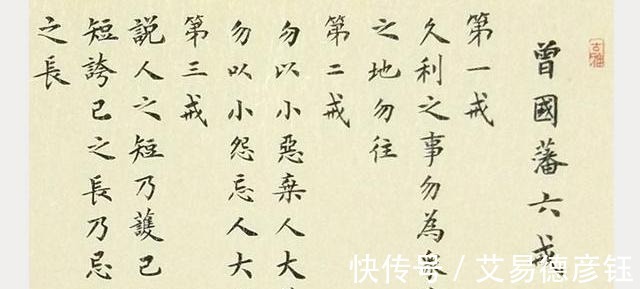 曾國藩六戒
第一戒
久利之事勿為
之地勿往
第二戒
勿以小惡棄人大
勿以小怨忘人大
第三戒
説人之短乃護己
短誇己之長乃忌
之長
快传号 / 艾易德彦钰